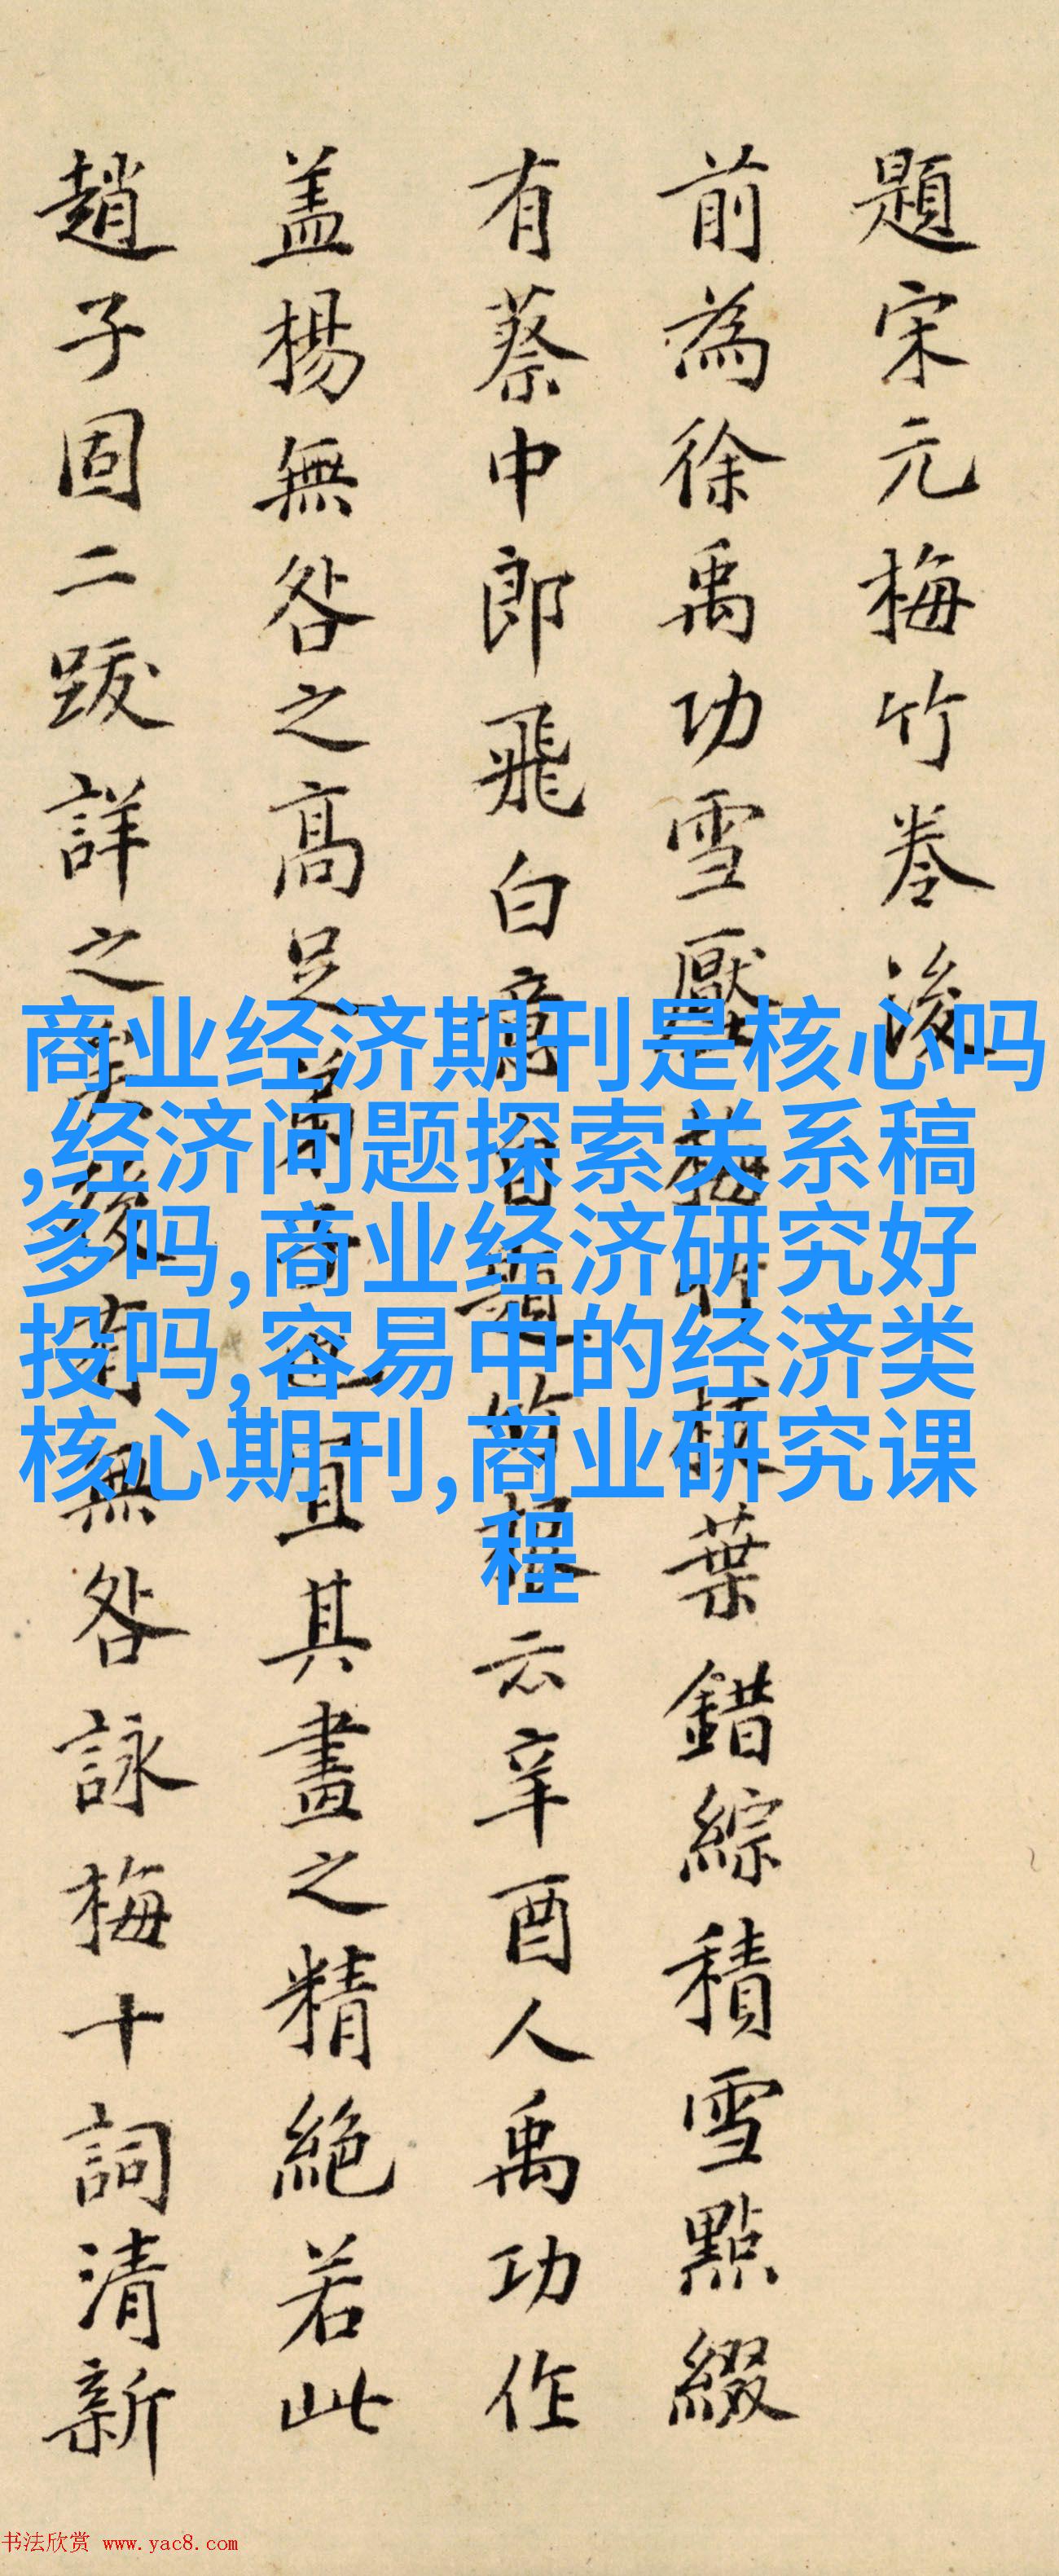 題宋元梅竹卷後
前為徐禹功雪壓梅竹枝葉錯綜積雪點綴
有蔡中郎飛白意自題竹根云辛酉人禹功作
盖楊無咎之高足弟子也且其畫之精絶若此
趙子固二跋詳之矣後有無咎詠梅十詞清新
商业经济期刊是核心吗
,经济问题探索关系稿
多吗,商业经济研究好
投吗,容易中的经济类
核心期刊,商业研究课
程
书法欣赏 www.yac8.com